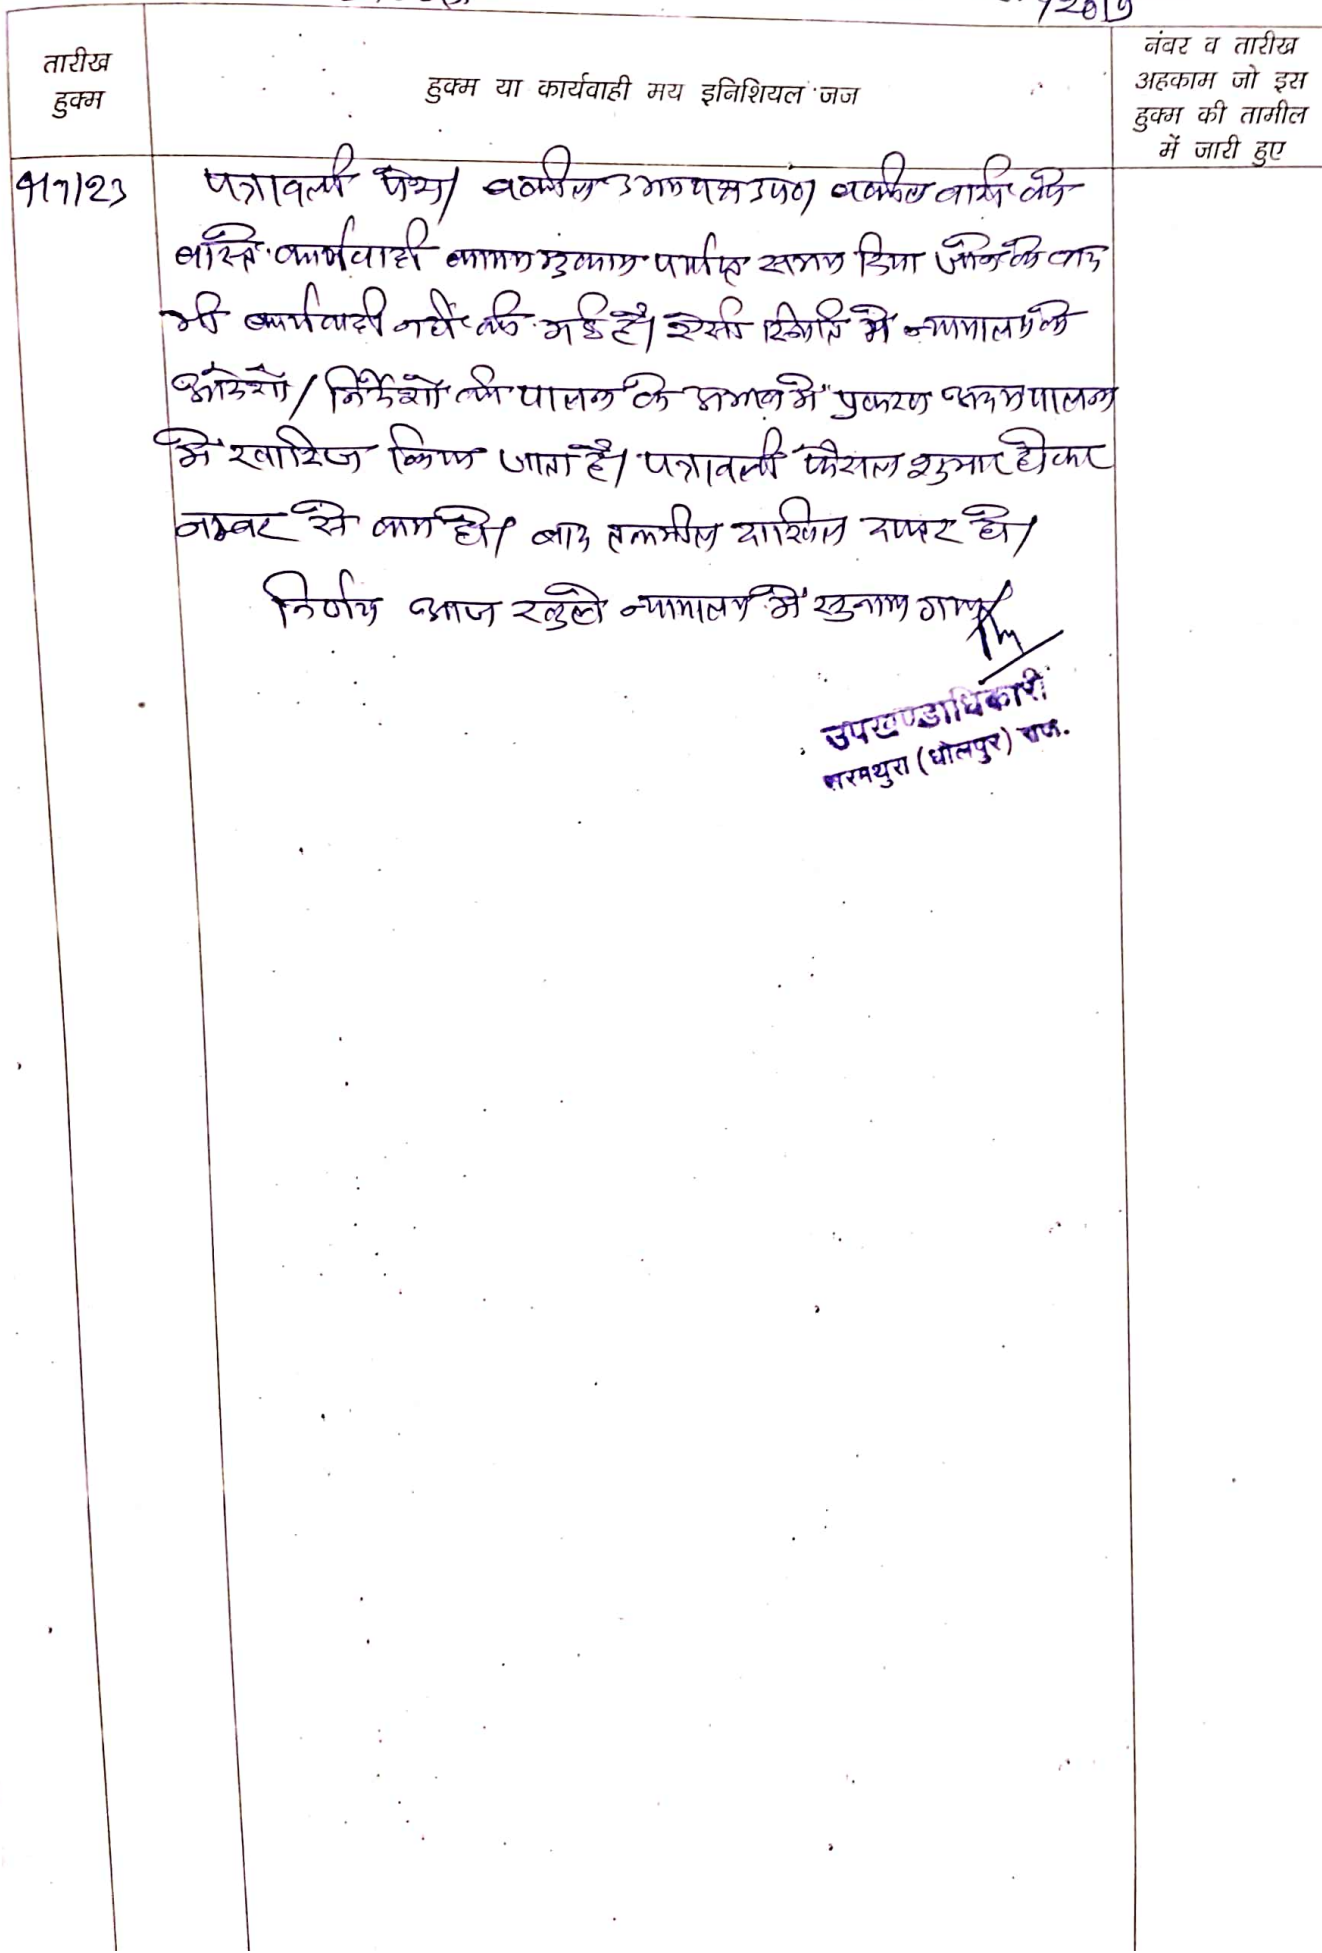 /2019
तारीख
हुक्म
हुक्म या कार्यवाही मय इनिशियल जज
नंबर व तारीख
अहकाम जो इस
हुक्म की तामील
में जारी हुए
पत्रावली पेश। वकील उभयपक्ष उप०। वकील वादी को
वास्ते कार्यवाही कायम मुकाम पर्याप्त समय दिया जाने के बाद
भी कार्यवाही नहीं की गई है। ऐसी स्थिति में न्यायालय के
आदेशों/निर्देशों की पालना के अभाव में प्रकरण अदम पालना
में खारिज किया जाता है। पत्रावली फैसल शुमार होकर
नम्बर से कम हो। बाद तकमील दाखिल दफ्तर हो।
निर्णय आज खुले न्यायालय में सुनाया गया।
उपखण्डाधिकारी
सरमथुरा (धौलपुर) राज.